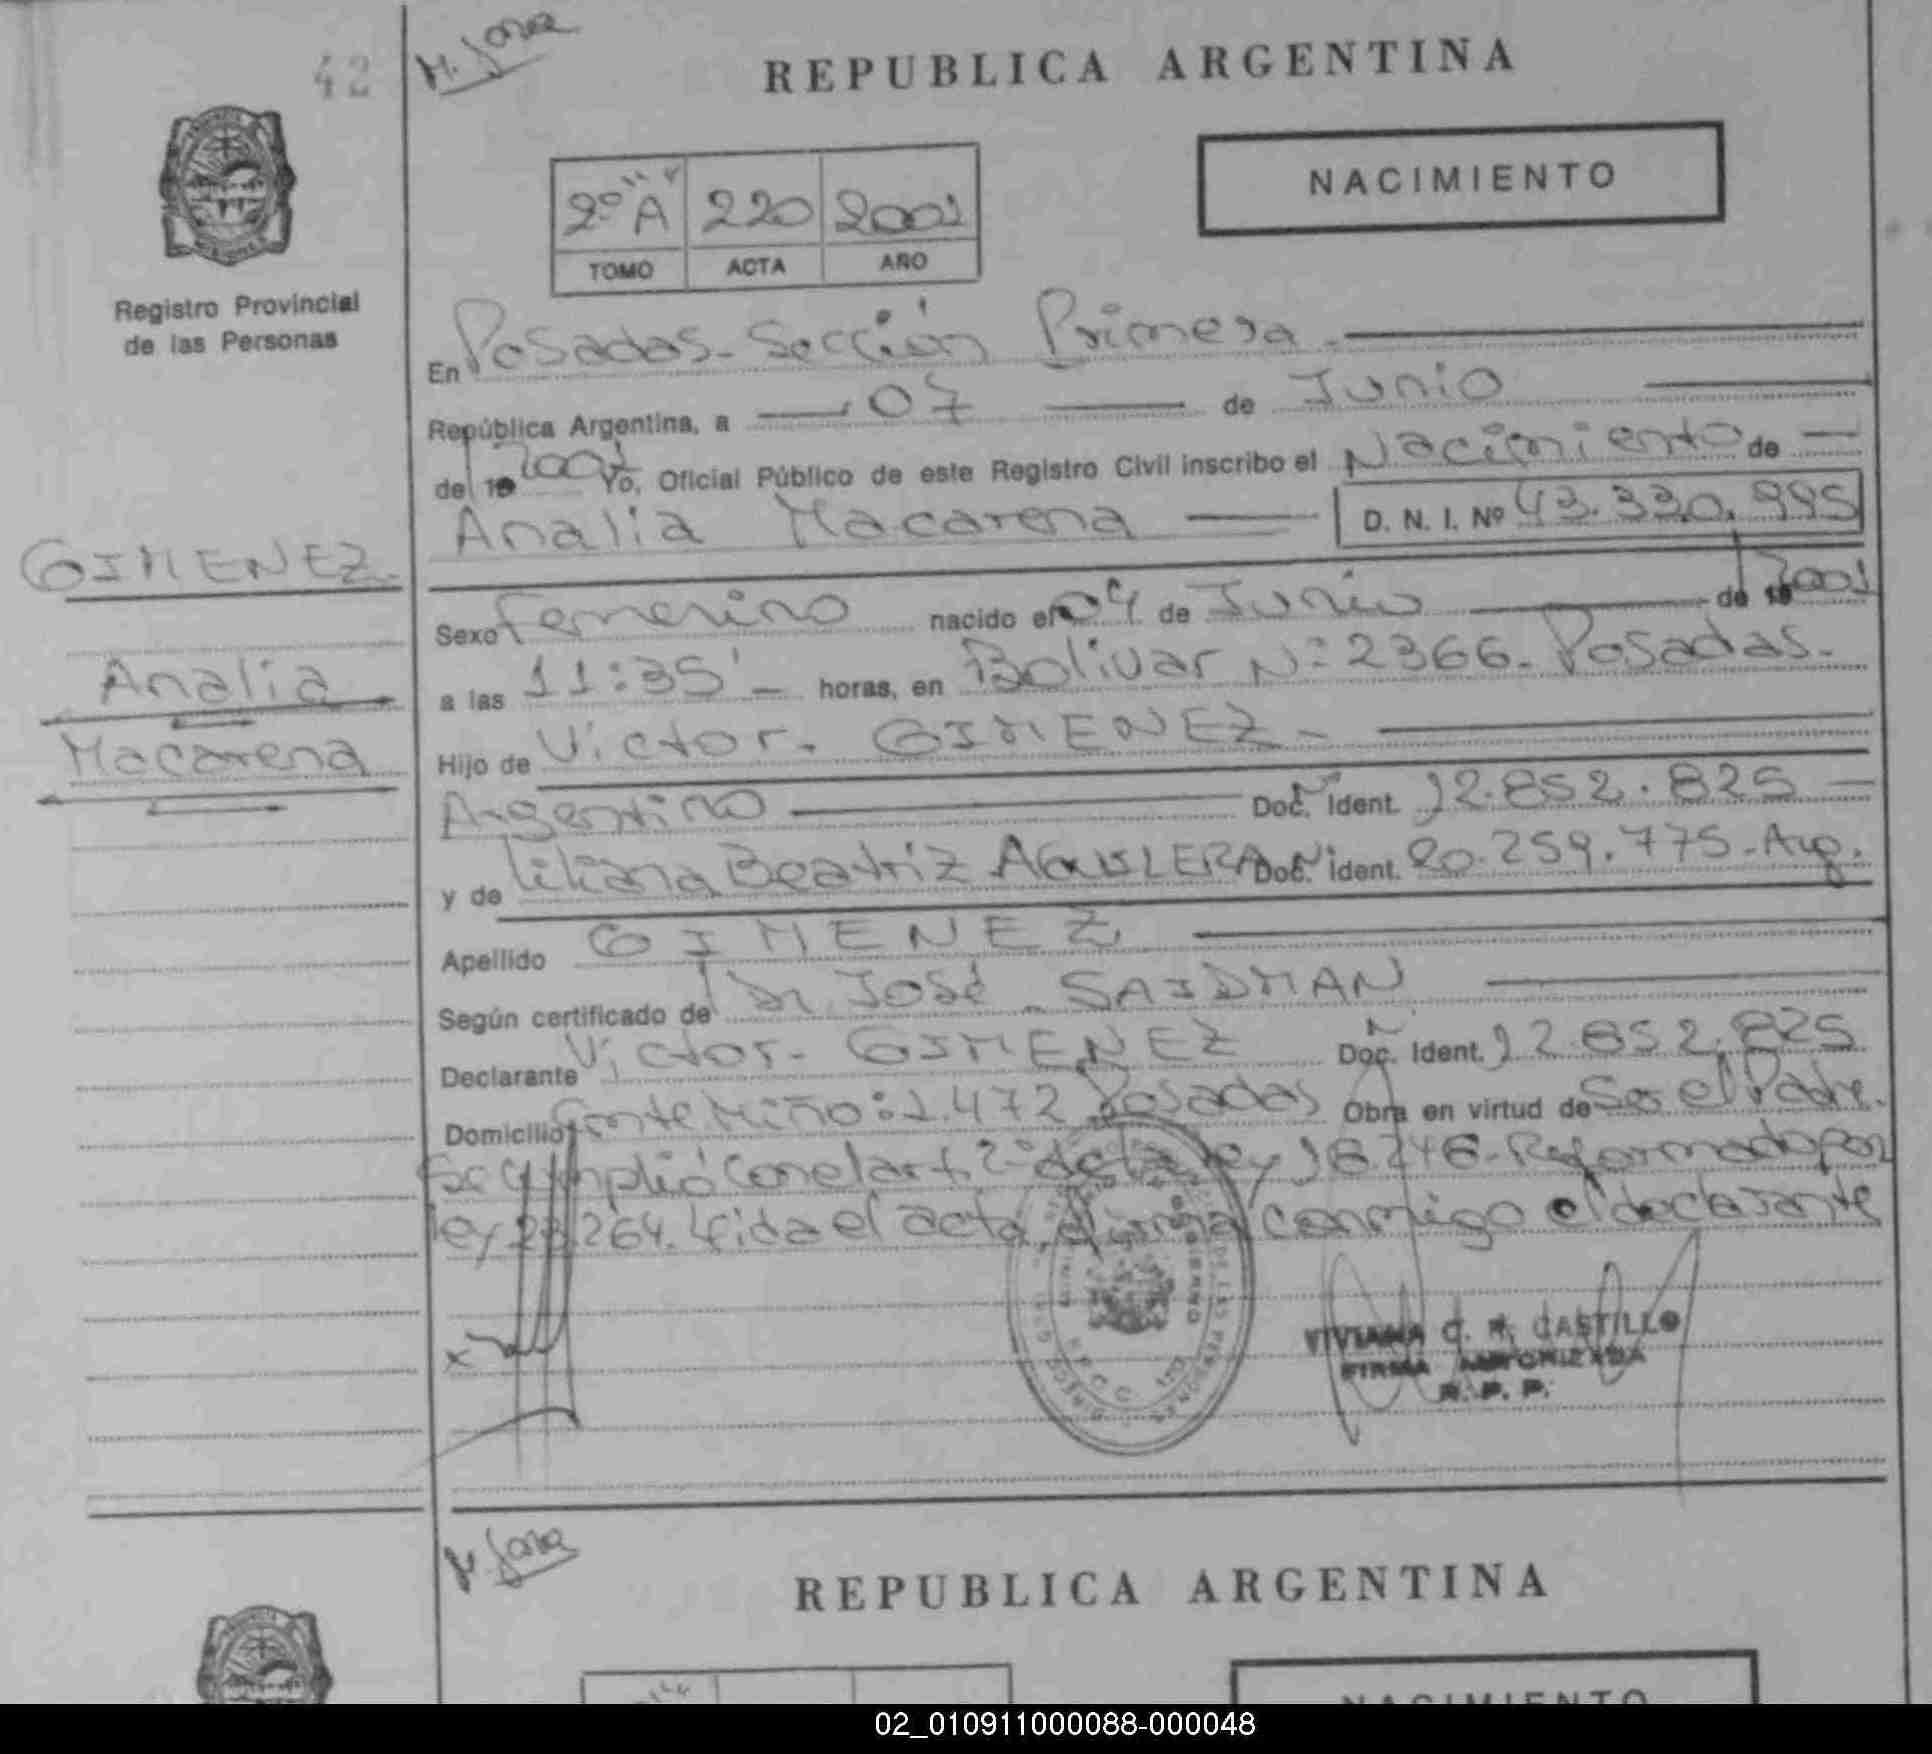 42
M. Jara
REPUBLICA ARGENTINA
NACIMIENTO
2º "A" 220 2001
TOMO ACTA AÑO
Registro Provincial
de las Personas
En Posadas - Sección Primera
República Argentina, a 07 de Junio
del 19 2001 Yo, Oficial Público de este Registro Civil inscribo el Nacimiento de
Analia Macarena D. N. I. Nº 43.330.995
GIMENEZ
Analia
Macarena
Sexo Femenino nacido el 04 de Junio de 19 2001
a las 11:35' horas, en Bolivar Nº: 2366 - Posadas -
Hijo de Victor - GIMENEZ -
Argentino Doc. Ident. 12.852.825
y de Liliana Beatriz AGUILERA Doc. Ident. 20.259.775 - Arg.
Apellido GIMENEZ
Según certificado de Dr José - SAIDMAN
Declarante Victor - GIMENEZ Doc. Ident. 12.852.825
Domicilio Miño: 1.472 Posadas Obra en virtud de Ser el Padre.
Se Cumplió Con el art. 2º de la ley 18.248 - Reformado por
ley 23.264. Leida el acta, firma conmigo el declarante
VIVIANA C. R. CASTILLO
FIRMA AUTORIZADA
R. P. P.
M. Jara
REPUBLICA ARGENTINA
NACIMIENTO
02_010911000088-000048